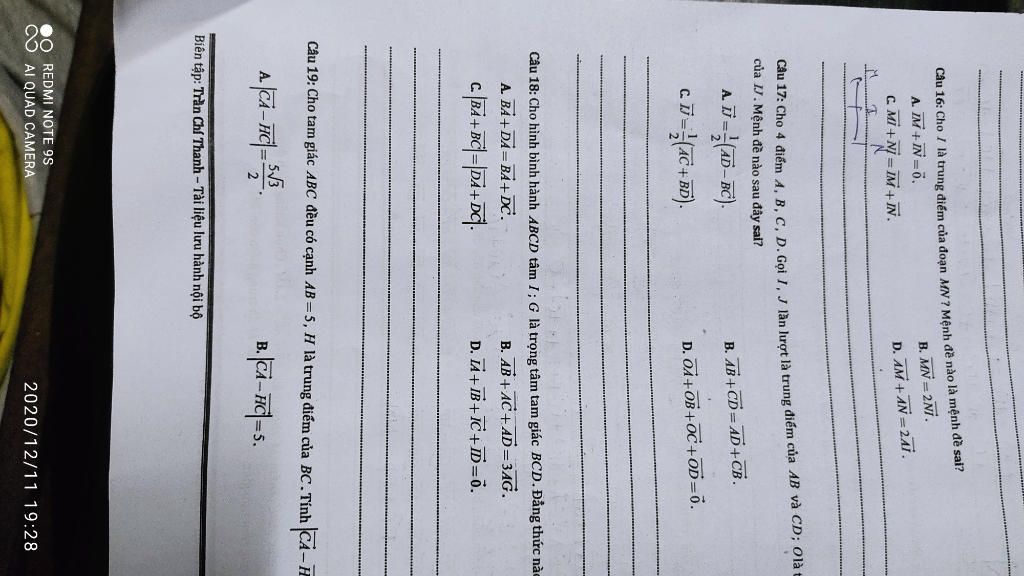 Câu 16: Cho I là trung điểm của đoạn MN? Mệnh đề nào là mệnh đề sai?
A. \overrightarrow{IM} + \overrightarrow{IN} = \vec{0}. B. \overrightarrow{MN} = 2\overrightarrow{NI}.
C. \overrightarrow{MI} + \overrightarrow{NI} = \overrightarrow{IM} + \overrightarrow{IN}. D. \overrightarrow{AM} + \overrightarrow{AN} = 2\overrightarrow{AI}.
M I N
Câu 17: Cho 4 điểm A, B, C, D. Gọi I, J lần lượt là trung điểm của AB và CD; O là
của IJ. Mệnh đề nào sau đây sai?
A. \overrightarrow{IJ} = \frac{1}{2}(\overrightarrow{AD} - \overrightarrow{BC}). B. \overrightarrow{AB} + \overrightarrow{CD} = \overrightarrow{AD} + \overrightarrow{CB}.
C. \overrightarrow{IJ} = \frac{1}{2}(\overrightarrow{AC} + \overrightarrow{BD}). D. \overrightarrow{OA} + \overrightarrow{OB} + \overrightarrow{OC} + \overrightarrow{OD} = \vec{0}.
Câu 18: Cho hình bình hành ABCD tâm I; G là trọng tâm tam giác BCD. Đẳng thức
A. \overrightarrow{BA} + \overrightarrow{DA} = \overrightarrow{BA} + \overrightarrow{DC}. B. \overrightarrow{AB} + \overrightarrow{AC} + \overrightarrow{AD} = 3\overrightarrow{AG}.
C. |\overrightarrow{BA} + \overrightarrow{BC}| = |\overrightarrow{DA} + \overrightarrow{DC}|. D. \overrightarrow{IA} + \overrightarrow{IB} + \overrightarrow{IC} + \overrightarrow{ID} = \vec{0}.
Câu 19: Cho tam giác ABC đều có cạnh AB = 5, H là trung điểm của BC. Tính |\overrightarrow{CA} - H
A. |\overrightarrow{CA} - \overrightarrow{HC}| = \frac{5\sqrt{3}}{2}. B. |\overrightarrow{CA} - \overrightarrow{HC}| = 5.
Biên tập: Trần Chí Thanh – Tài liệu lưu hành nội bộ
REDMI NOTE 9S
AI QUAD CAMERA
2020/12/11 19:28